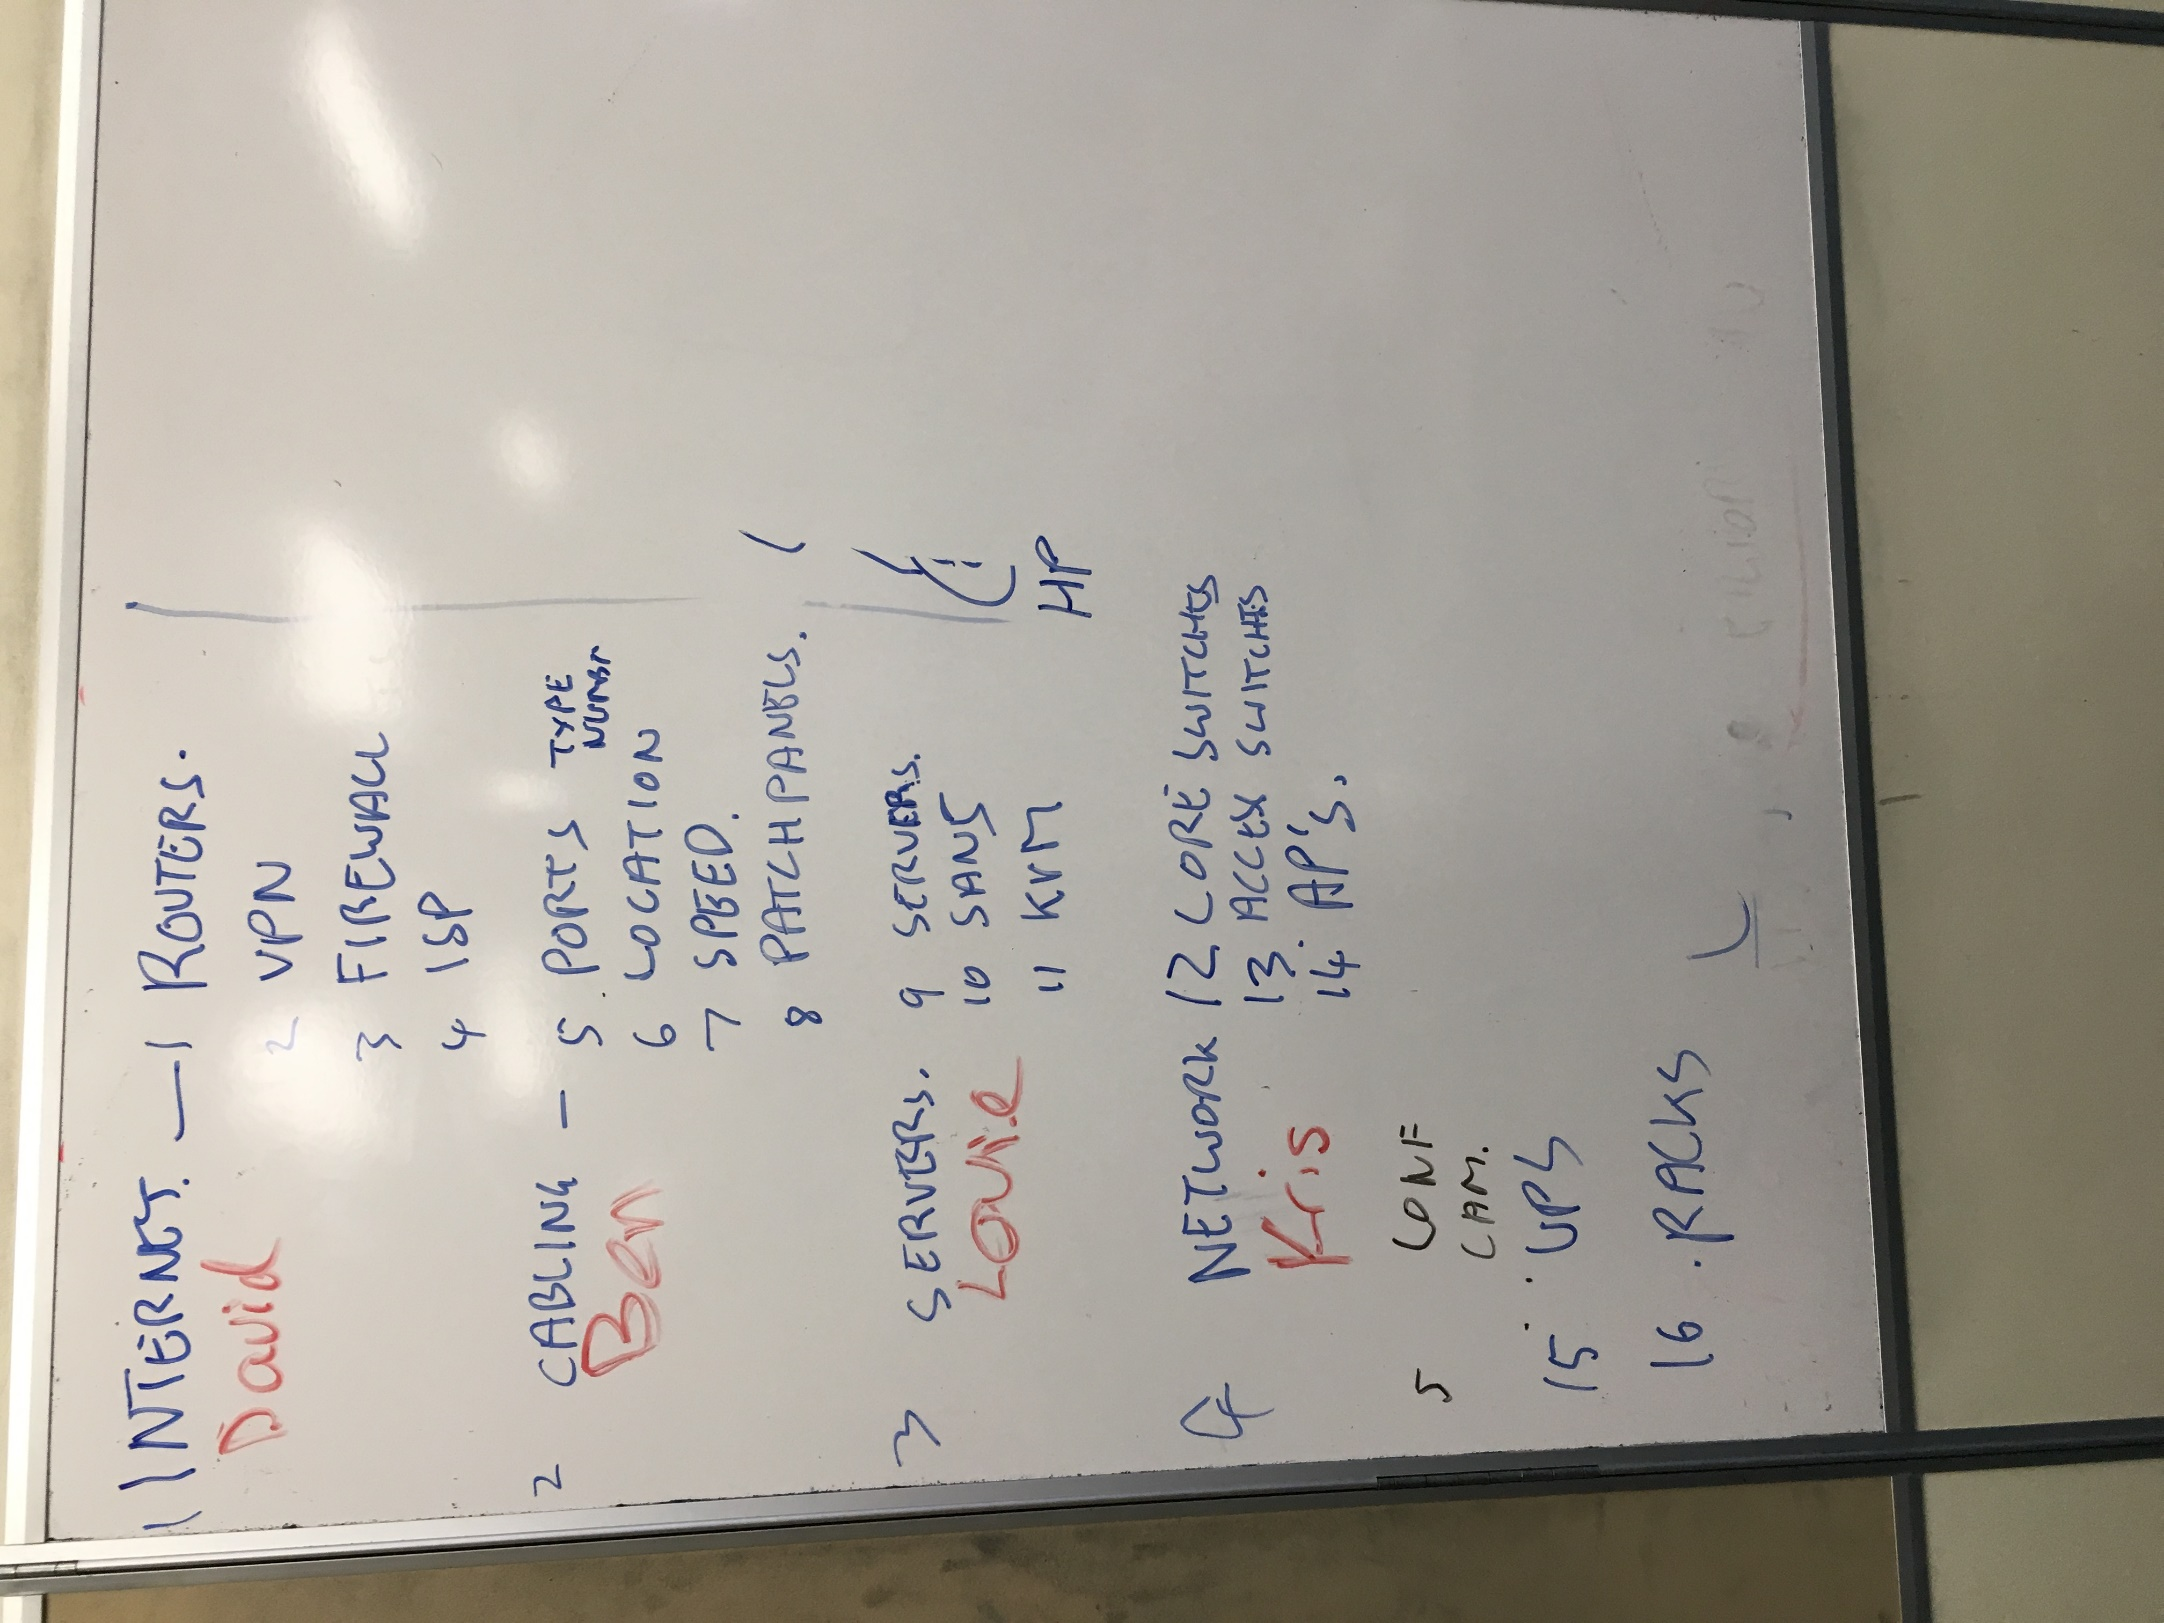 1 INTERNET. — 1 ROUTERS.
David
2 VPN
3 FIREWALL
4 ISP
2 CABLING - 5. PORTS TYPE
NUMBR
Ben
6 LOCATION
7 SPEED.
8 PATCHPANELS.
3 SERVERS. 9 SERVERS.
Louie
10 SANS
11 KVM HP
4 NETWORK 12 CORE SWITCHES
Kris
13. ACCESS SWITCHES
14. AP'S.
5 CONF
CAM.
15. UPS
16. RACKS